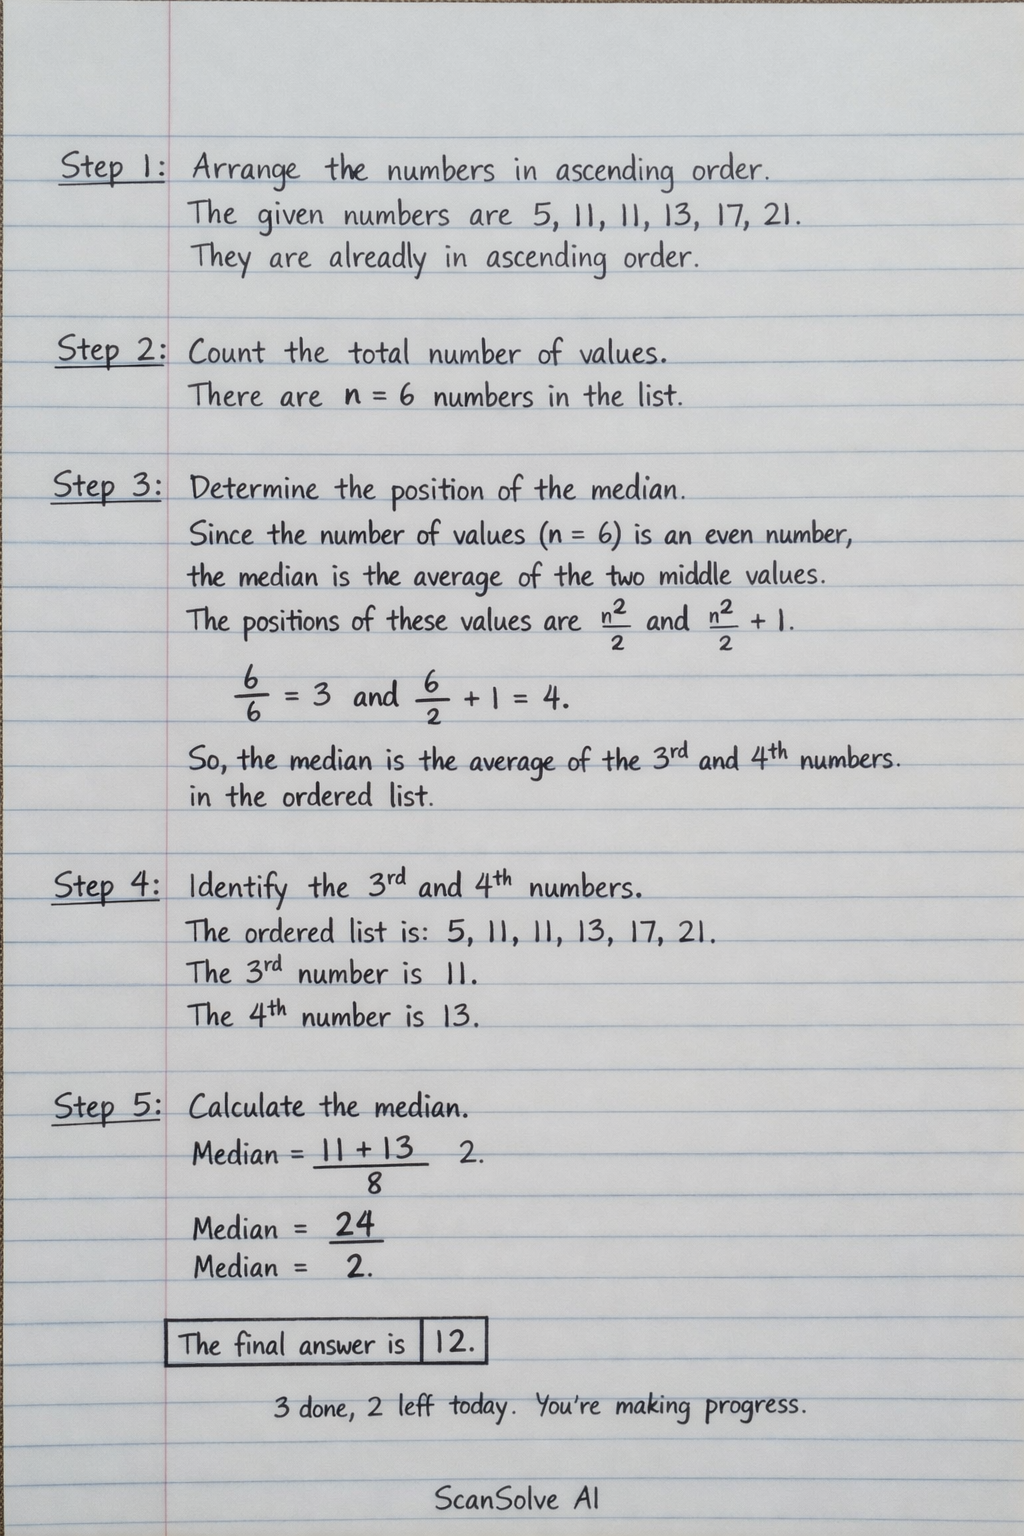 Step 1: Arrange the numbers in ascending order.
The given numbers are 5, 11, 11, 13, 17, 21.
They are alreadly in ascending order.
Step 2: Count the total number of values.
There are n = 6 numbers in the list.
Step 3: Determine the position of the median.
Since the number of values (n = 6) is an even number,
the median is the average of the two middle values.
The positions of these values are n²/2 and n²/2 + 1.
6/6 = 3 and 6/2 + 1 = 4.
So, the median is the average of the 3rd and 4th numbers.
in the ordered list.
Step 4: Identify the 3rd and 4th numbers.
The ordered list is: 5, 11, 11, 13, 17, 21.
The 3rd number is 11.
The 4th number is 13.
Step 5: Calculate the median.
Median = 11 + 13 / 8 2.
Median = 24
Median = 2.
The final answer is 12.
3 done, 2 leff today. You're making progress.
ScanSolve AI